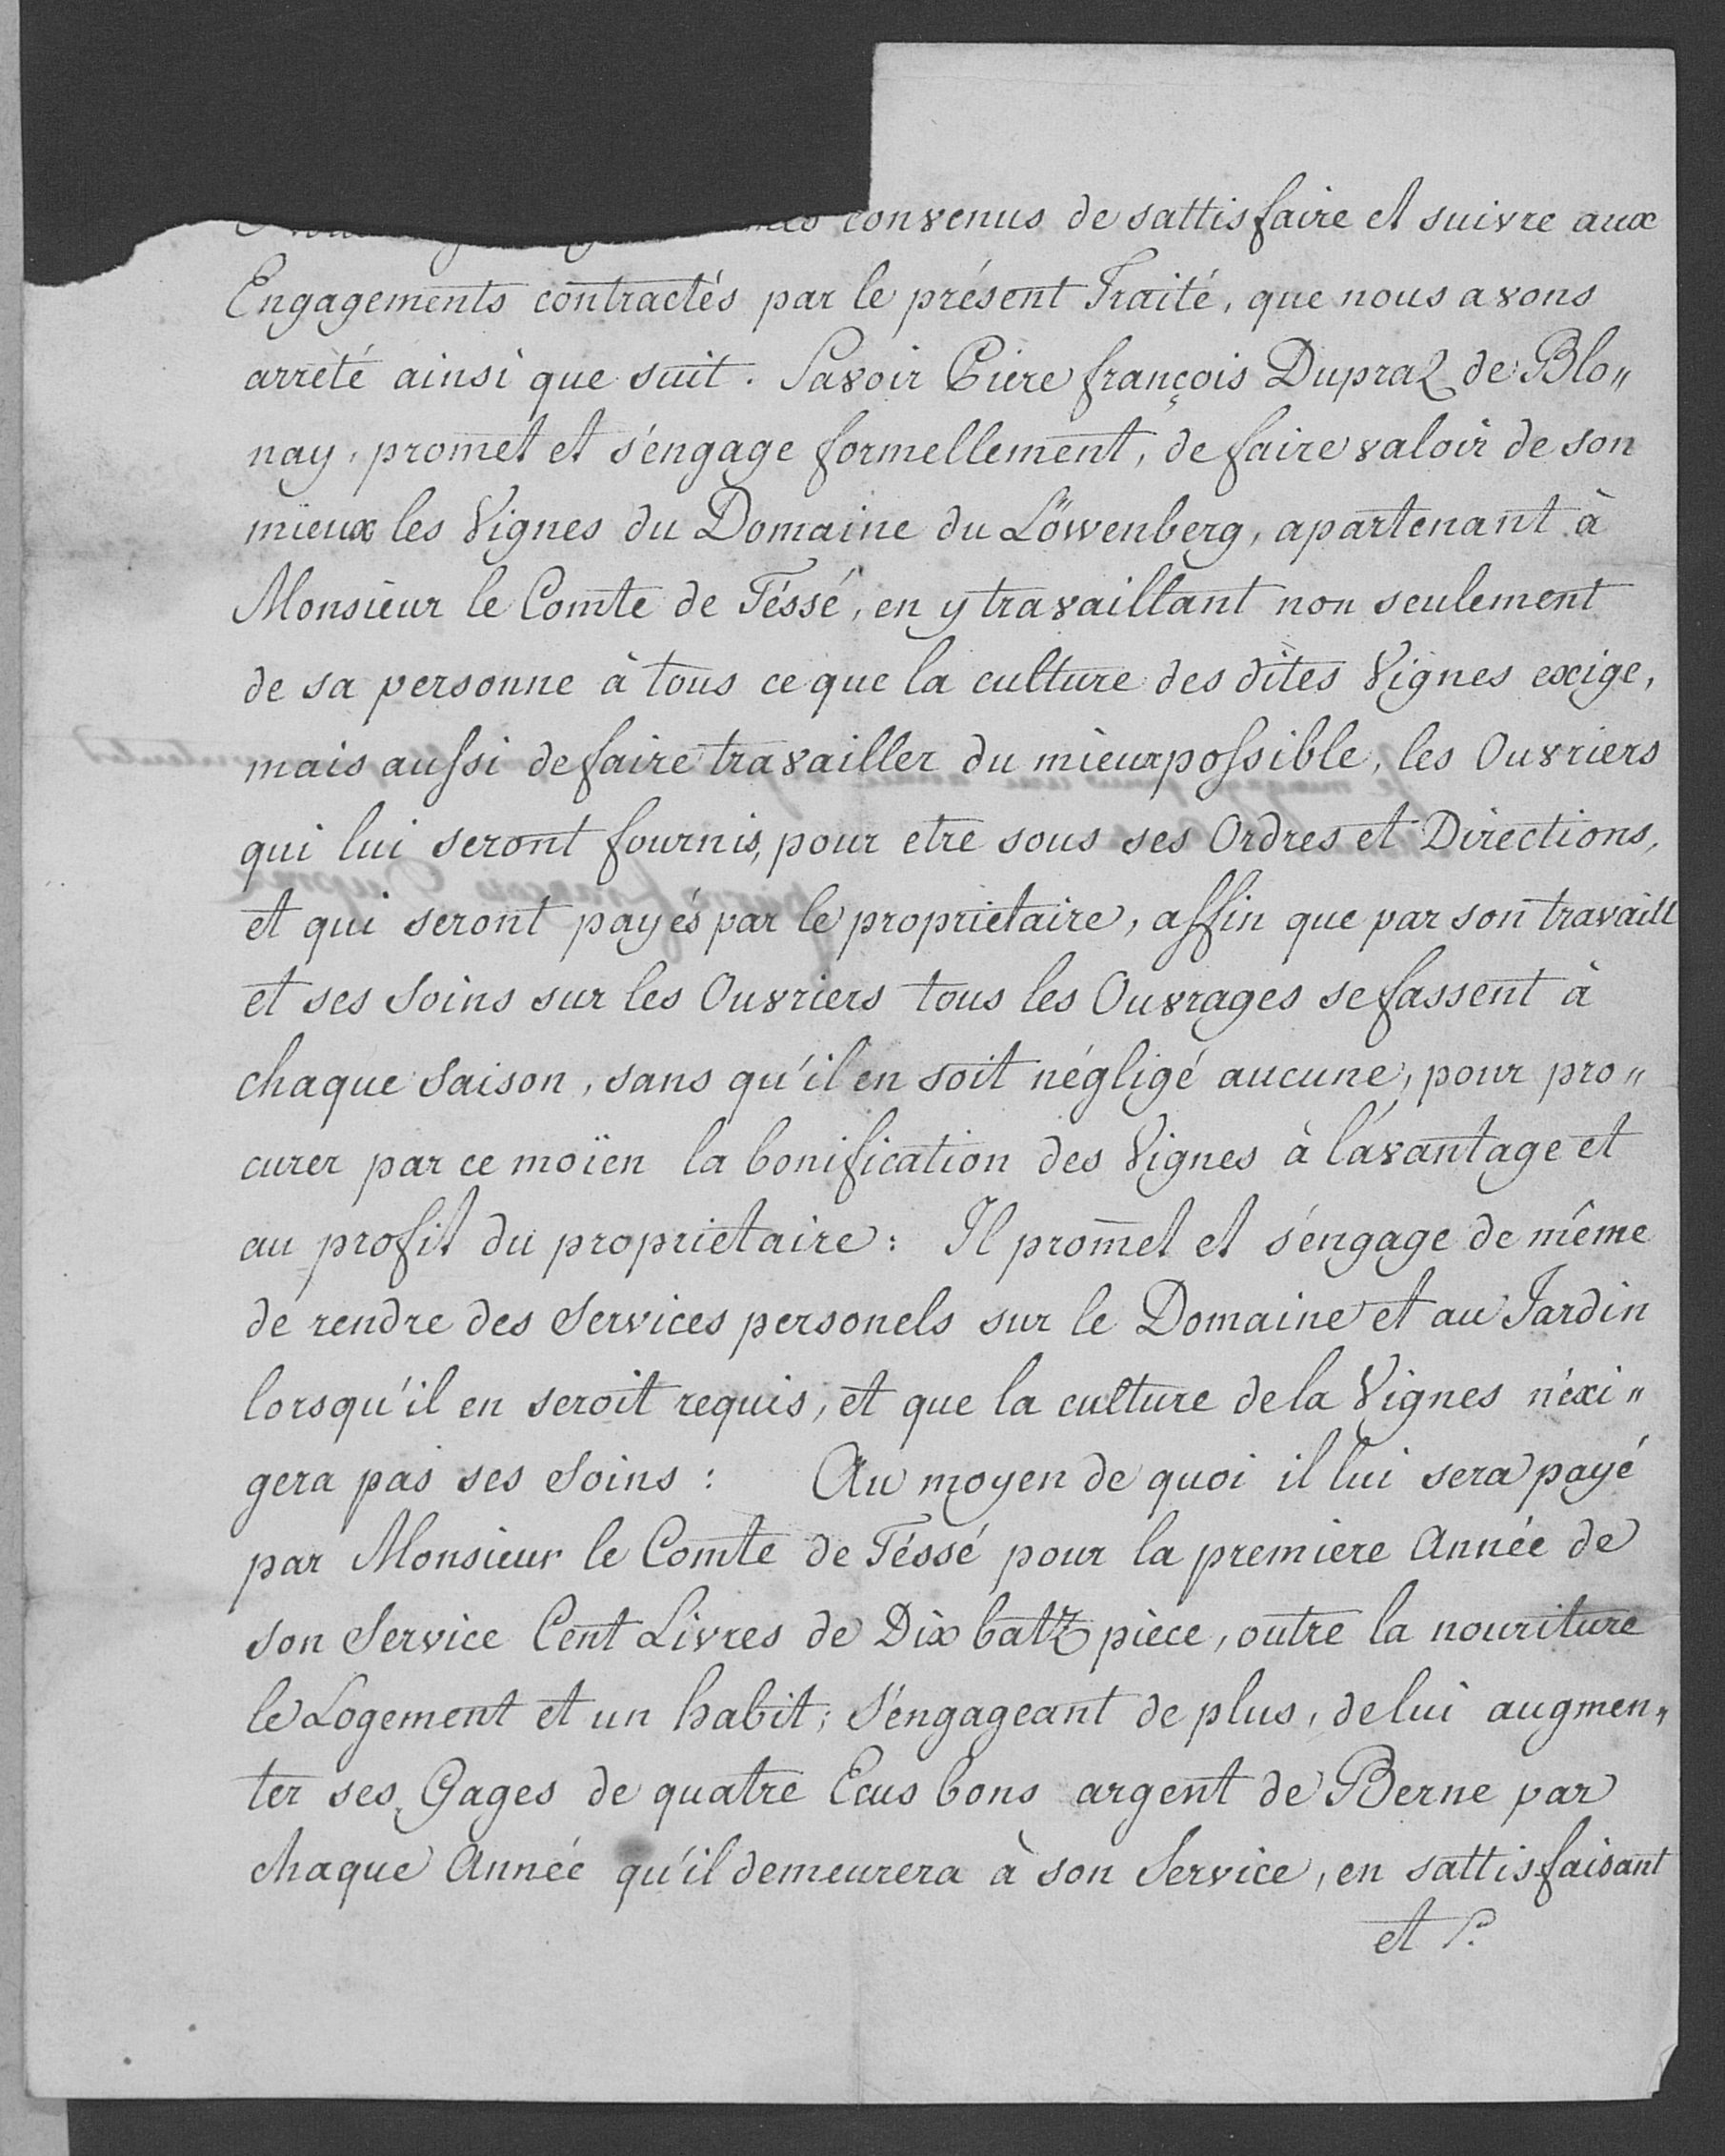 convenus de sattisfaire et suivre aux
Engagements contractés par le présent Traité, que nous avons
arreté ainsi que suit. Savoir Piere françois Dupraz de Blo„
nay, promet et s'éngage formellement, de faire valoir de son
mieux les Vignes du Domaine du Löwenberg, apartenant à
Monsieur le Comte de Téssé, en y travaillant non seulement
de sa personne à tous ce que la culture des dites Vignes exige,
mais aussi de faire travailler du mieux possible, les Ouvriers
qui lui seront fournis, pour etre sous ses Ordres et Directions,
et qui seront payés par le proprietaire, affin que par son travaill
et ses Soins sur les Ouvriers tous les Ouvrages se fassent à
chaque Saison, sans qu'il en soit négligé aucune, pour pro„
curer par ce moïen la bonification des Vignes à l'avantage et
au profit du proprietaire: Il promet et s'éngage de même
de rendre des Services personels sur le Domaine et au Jardin
lorsqu'il en seroit requis, et que la culture de la Vignes n'éxi„
gera pas ses Soins: Au moyen de quoi il lui sera payé
par Monsieur le Comte de Téssé pour la premiere Année de
son Service Cent Livres de Dix batz pièce, outre la nouriture
le Logement et un habit; S'éngageant de plus, de lui augmen„
ter ses Gages de quatre Ecus bons argent de Berne par
chaque Année qu'il demeurera à son Service, en sattisfaisant
et